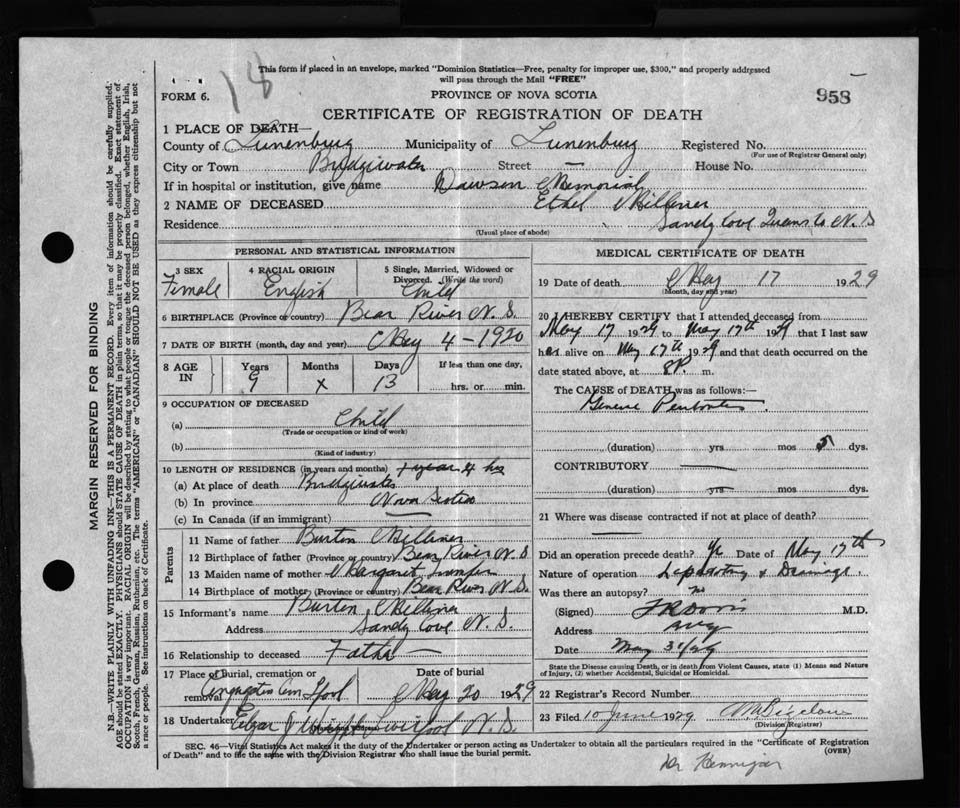 This form if placed in an envelope, marked "Dominion Statistics—Free, penalty for improper use, $300," and properly addressed
will pass through the Mail "FREE"
18
FORM 6.
PROVINCE OF NOVA SCOTIA
958
CERTIFICATE OF REGISTRATION OF DEATH
1 PLACE OF DEATH—
County of Lunenburg Municipality of Lunenburg Registered No.
(For use of Registrar General only)
City or Town Bridgewater Street — House No.
If in hospital or institution, give name Dawson Memorial
2 NAME OF DECEASED Ethel
Residence Sandy Cove Queens Co N.S
(Usual place of abode)
PERSONAL AND STATISTICAL INFORMATION
3 SEX
Female
4 RACIAL ORIGIN
English
5 Single, Married, Widowed or
Divorced. (Write the word)
Child
6 BIRTHPLACE (Province or country) Bear River N.S.
7 DATE OF BIRTH (month, day and year) May 4 - 1920
8 AGE IN
Years Months Days If less than one day,
9 x 13 hrs. or min.
9 OCCUPATION OF DECEASED
(a) Child
(Trade or occupation or kind of work)
(b)
(Kind of industry)
10 LENGTH OF RESIDENCE (in years and months) 4 hrs
(a) At place of death Bridgewater
(b) In province Nova Scotia
(c) In Canada (if an immigrant) —
Parents
11 Name of father Burton
12 Birthplace of father (Province or country) Bear River N.S
13 Maiden name of mother Margaret
14 Birthplace of mother (Province or country) Bear River N.S.
15 Informant's name Burton
Address Sandy Cove N.S.
16 Relationship to deceased Father
17 Place of burial, cremation or
removal
Date of burial
May 20 1929
18 Undertaker N.S.
MEDICAL CERTIFICATE OF DEATH
19 Date of death May 17 1929
(Month, day and year)
20 I HEREBY CERTIFY that I attended deceased from
May 17 1929 to May 17th 1929 that I last saw
her alive on May 17th 1929 and that death occurred on the
date stated above, at 8P. m.
The CAUSE of DEATH was as follows:—
(duration) yrs mos 5 dys.
CONTRIBUTORY
(duration) yrs mos dys.
21 Where was disease contracted if not at place of death?
—
Did an operation precede death? Date of May 17th
Nature of operation & Drainage.
Was there an autopsy? No
(Signed) M.D.
Address
Date May 31/29
State the Disease causing Death, or in death from Violent Causes, state (1) Means and Nature
of Injury, (2) whether Accidental, Suicidal or Homicidal.
22 Registrar's Record Number
23 Filed 10 June 1929
(Division Registrar)
SEC. 46—Vital Statistics Act makes it the duty of the Undertaker or person acting as Undertaker to obtain all the particulars required in the "Certificate of Registration
of Death" and to file the same with the Division Registrar who shall issue the burial permit.
(OVER)
MARGIN RESERVED FOR BINDING
N.B.—WRITE PLAINLY WITH UNFADING INK—THIS IS A PERMANENT RECORD. Every item of information should be carefully supplied.
AGE should be stated EXACTLY. PHYSICIANS should STATE CAUSE OF DEATH in plain terms, so that it may be properly classified. Exact statement of
OCCUPATION is very important. RACIAL ORIGIN will be described by stating to what people or tongue the deceased person belonged, whether English, Irish,
Scotch, French, German, Russian, Ruthenian, etc. The terms "AMERICAN" or "CANADIAN" SHOULD NOT BE USED as they express citizenship but not
a race or people. See instructions on back of Certificate.